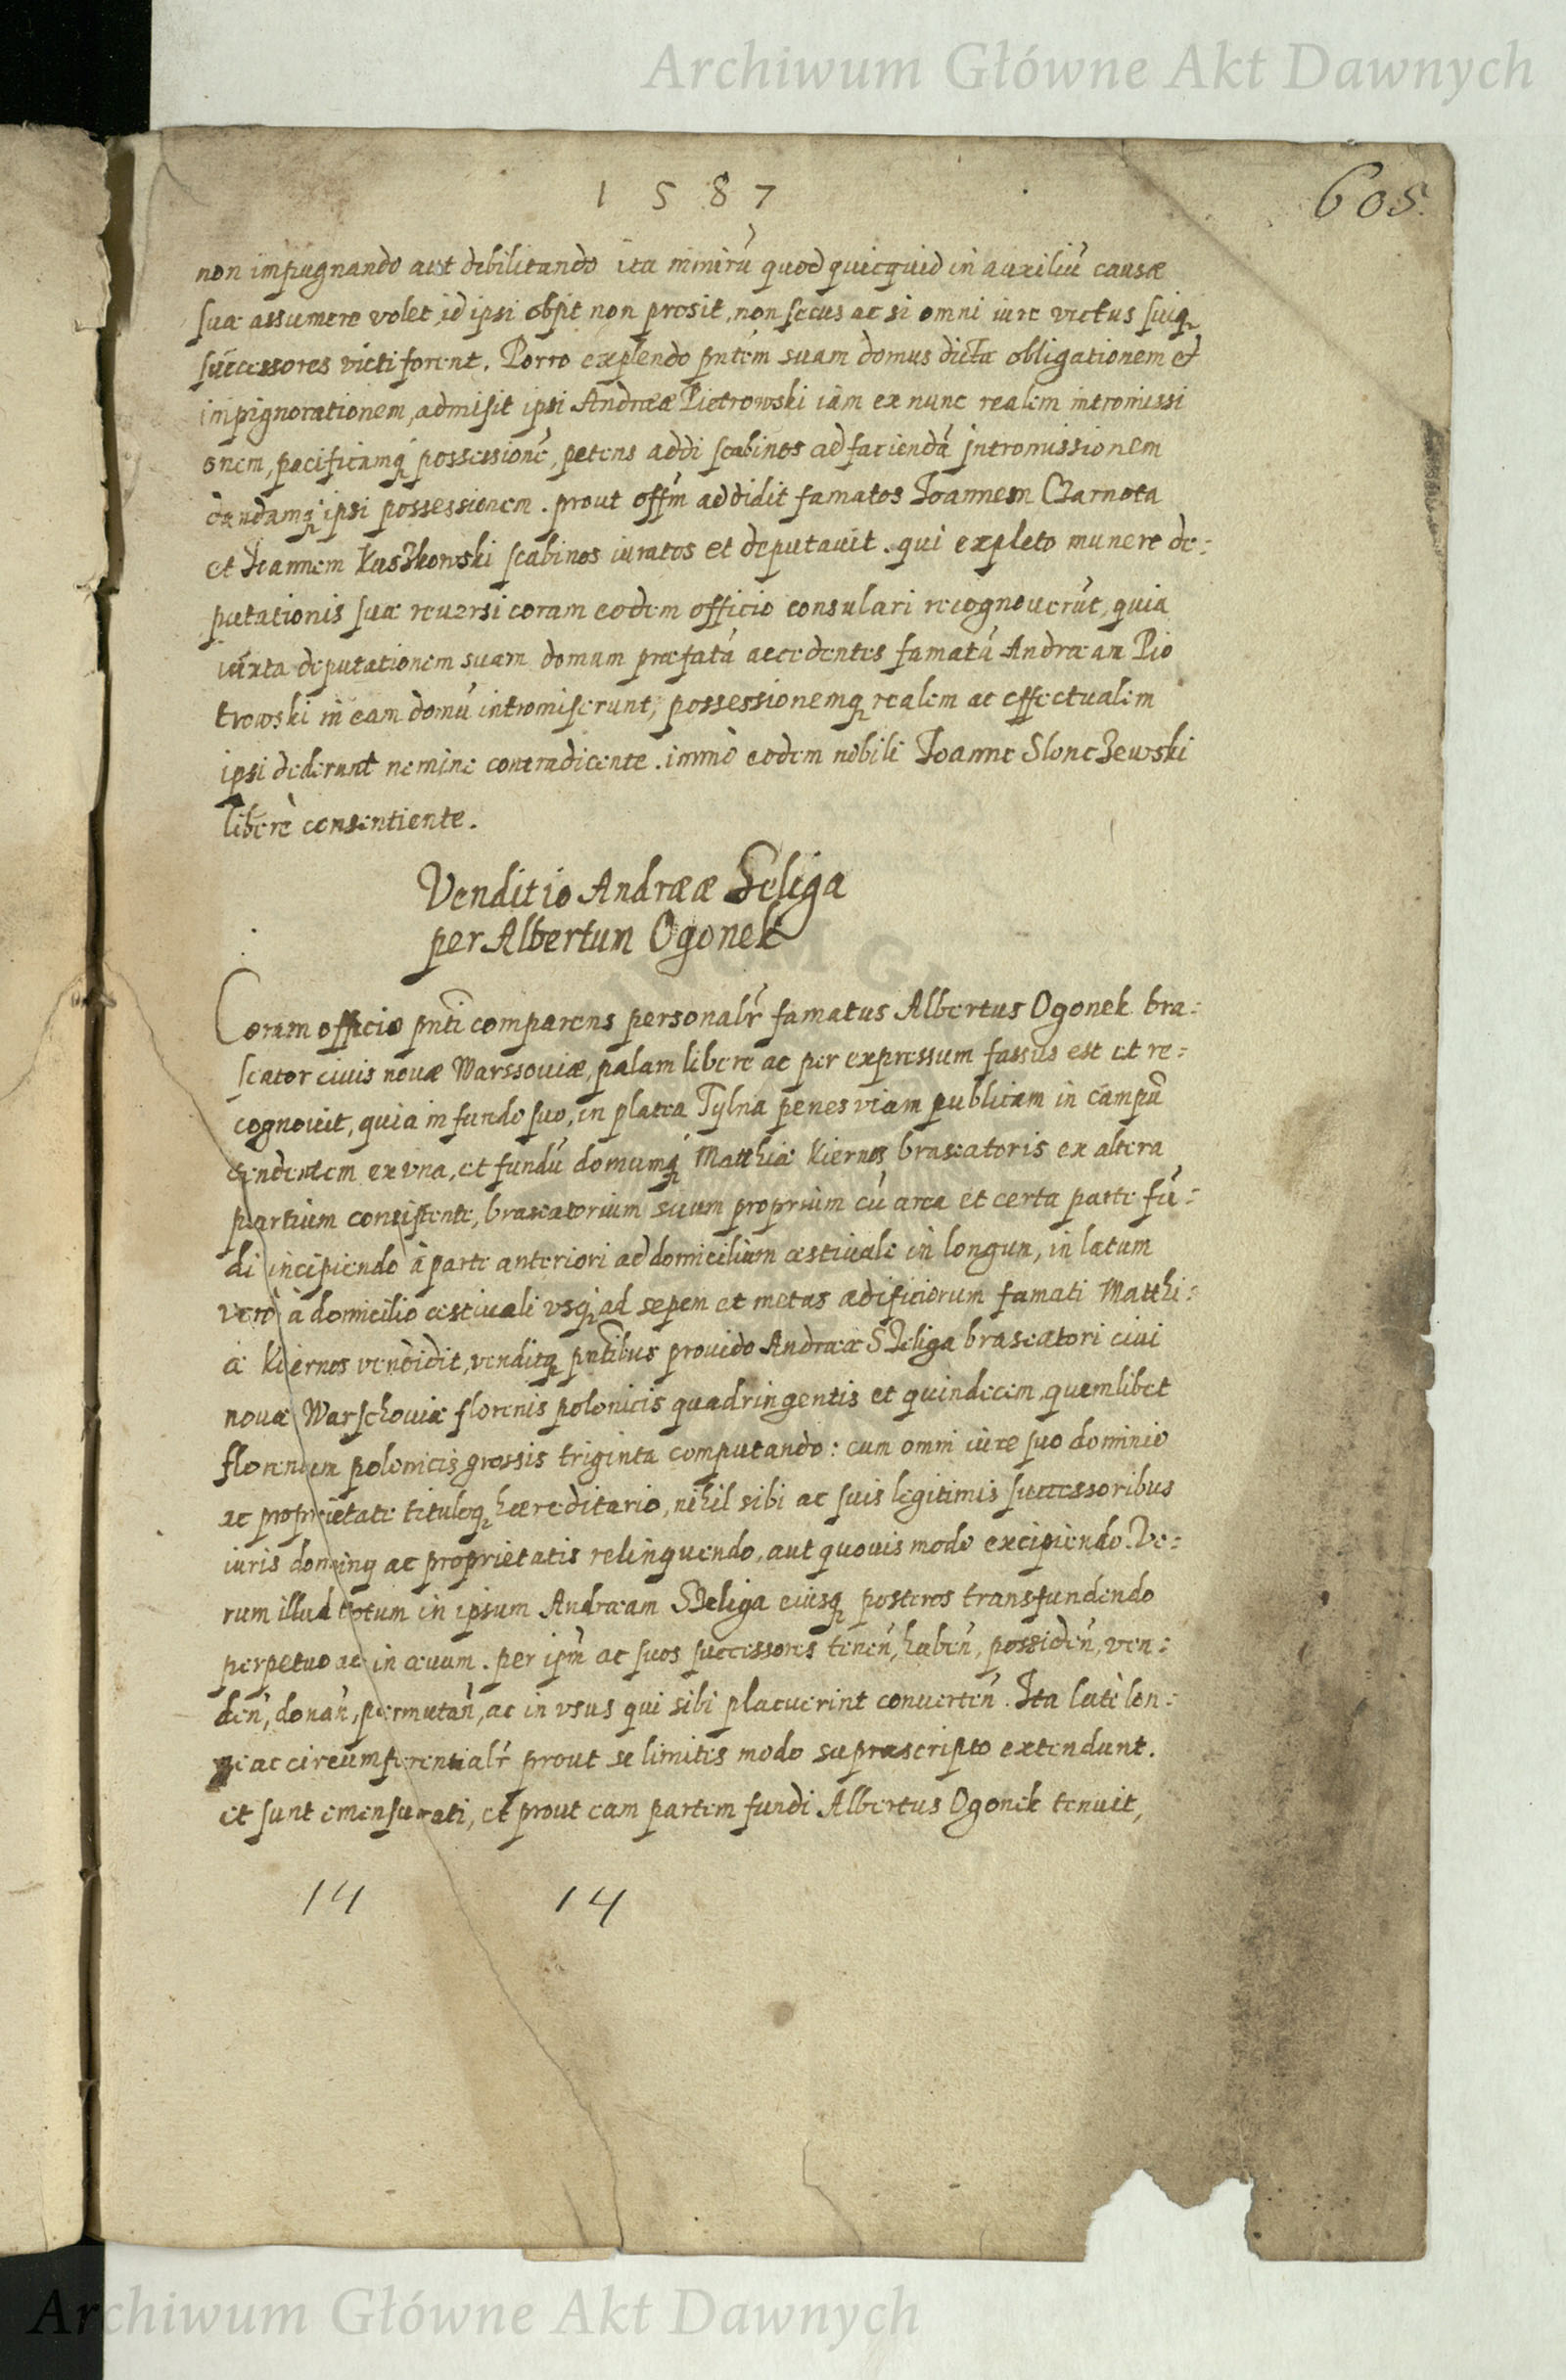 Archiwum Główne Akt Dawnych
1587
605.
non impugnando aut debilitando ita nimirũ quod quicquid in auxiliũ causæ
suæ assumere volet, id ipsi obsit non prosit, non secus ac si omni iure victus suiq;
successores victi forent. Porro explendo pn̄tem suam domus dictæ obligationem et
impignorationem, admisit ipsi Andreæ Pietrowski iam ex nunc realem intromissi
onem, pacificamq; possessionẽ, petens addi scabinos ad faciendã intromissionem
dandamq; ipsi possessionem. prout offm̃ addidit famatos Joannem Czarnota
et Joannem Kuszkowski scabinos iuratos et deputauit. qui expleto munere de=
putationis suæ reuersi coram eodem officio consulari recognouerũt, quia
iuxta deputationem suam domum præfatã accedentes famatũ Andræam Pio
trowski in eam domũ intromiserunt, possessionemq; realem ac effectualem
ipsi dederunt nemine contradicente. immò eodem nobili Joanne Slonczewski
liberè consentiente.
Venditio Andreæ Szeliga
per Albertum Ogonek
Coram officio pn̄ti comparens personalr̃ famatus Albertus Ogonek bra=
seator ciuis nouæ Warssouiæ, palam libere ac per expressum fassus est et re=
cognouit, quia in fundo suo, in platea Tylna penes viam publicam in campũ
tendentem ex vna, et fundũ domumq; Matthiæ Kiernos braseatoris ex altera
partium consistente, braseatorium suum proprium cũ area et certa parte fũ=
di incipiendo à parte anteriori ad domicilium æstiuale in longum, in latum
verò à domicilio æstiuali vsq; ad sepem et metas ædificiorum famati Matthi=
æ Kiernos vendidit, venditq; pn̄tibus prouido Andreæ Szeliga braseatori ciui
nouæ Warschouiæ florenis polonicis quadringentis et quindecem quemlibet
florenum polonicis grossis triginta computando: cum omni iure suo dominio
ac proprietate tituloq; hæreditario, nihil sibi ac suis legitimis successoribus
iuris dominij ac proprietatis relinquendo, aut quouis modo excipiendo. Ve=
rum illud totum in ipsum Andræam Szeliga eiusq; posteros transfundendo
perpetuo ac in æuum. per ipm̃ ac suos successores teneñ, habeñ, possideñ, ven=
deñ, donañ, permutañ, ac in vsus qui sibi placuerint conuerteñ. Ita latè lon=
gè ac circumferentialr̃ prout se limites modo suprascripto extendunt.
et sunt emensurati, et prout eam partem fundi Albertus Ogonek tenuit,
14 14
Archiwum Główne Akt Dawnych